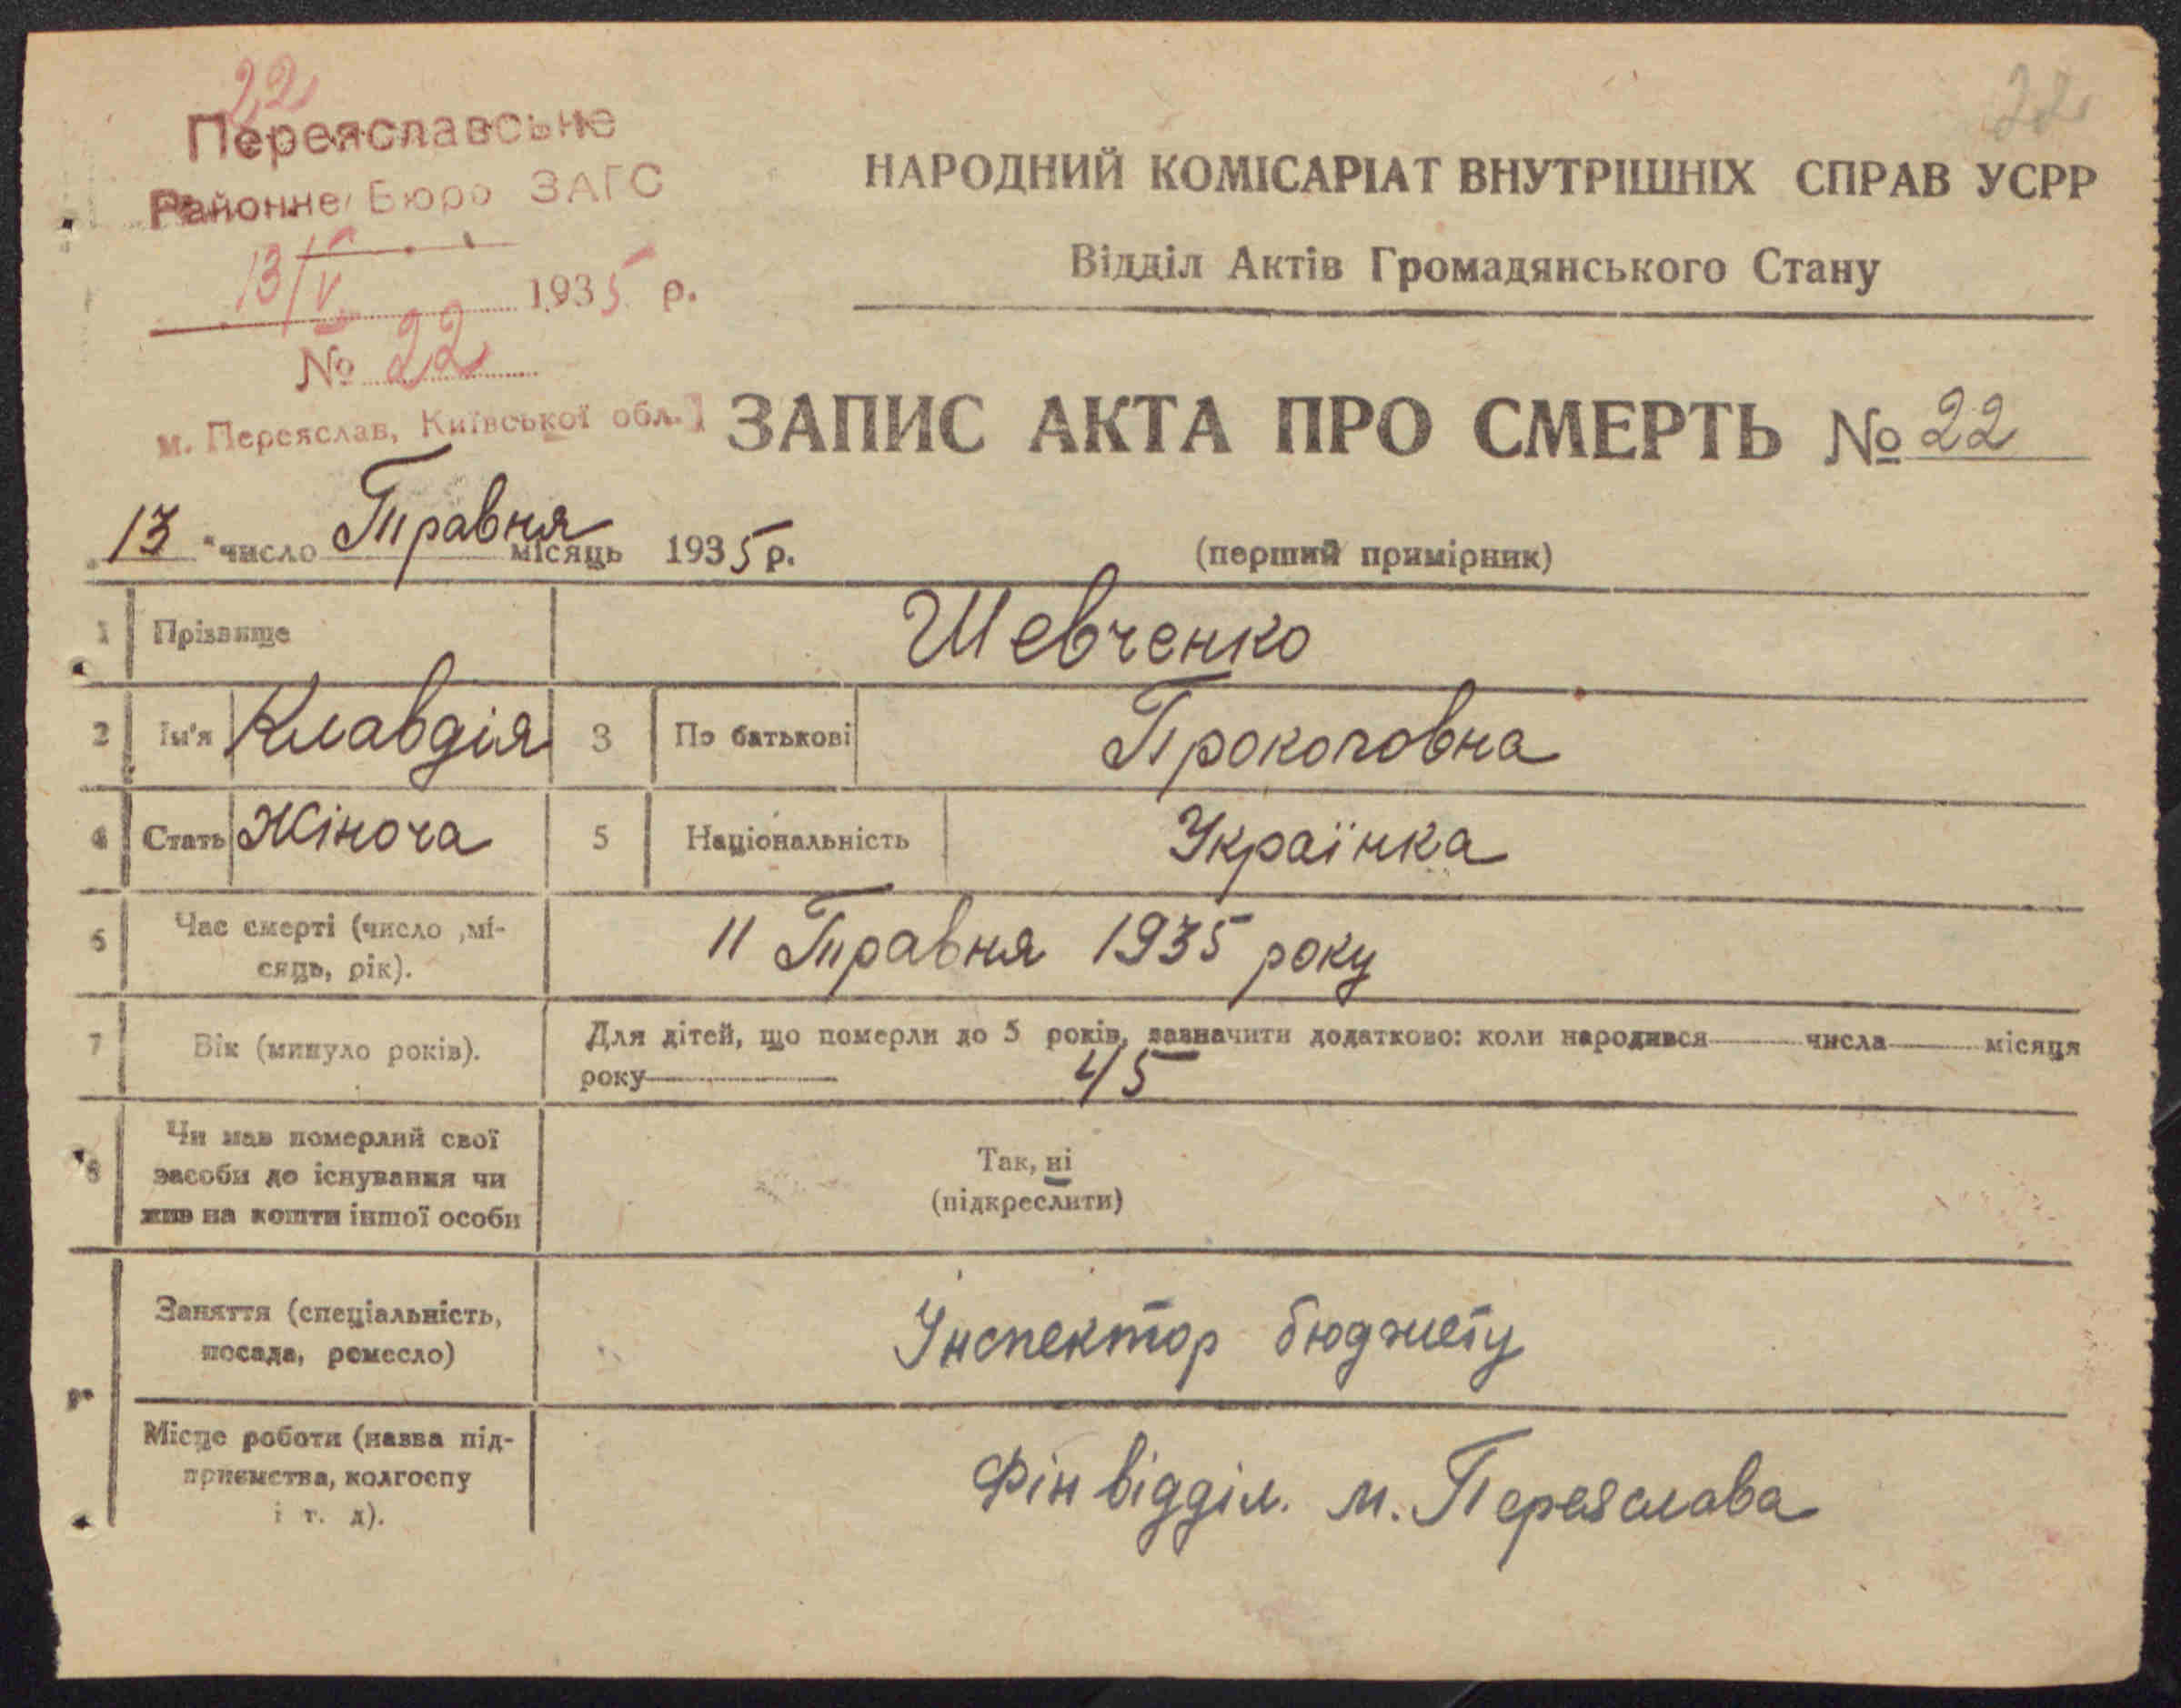 22
Переяславське
Районне Бюро ЗАГС
13/V 1935 р.
№ 22
м. Переяслав, Київської обл.
22
НАРОДНИЙ КОМІСАРІАТ ВНУТРІШНІХ СПРАВ УСРР
Відділ Актів Громадянського Стану
ЗАПИС АКТА ПРО СМЕРТЬ № 22
"13" число Травня місяць 1935 р.
(перший примірник)
1 Прізвище Шевченко
2 Ім'я Клавдія 3 По батькові Прокоповна
4 Стать Жіноча 5 Національність Українка
6 Час смерті (число ,мі-
сяць, рік).
11 Травня 1935 року
7 Вік (минуло років).
Для дітей, що померли до 5 років, зазначити додатково: коли народився числа місяця
року 45
8 Чи мав померлий свої
засоби до існування чи
жив на кошти іншої особи
Так, ні
(підкреслити)
Заняття (спеціальність,
посада, ремесло)
Інспектор бюджету
9
Місце роботи (назва під-
приємства, колгоспу
і т. д).
Фінвідділ. м. Переяслава